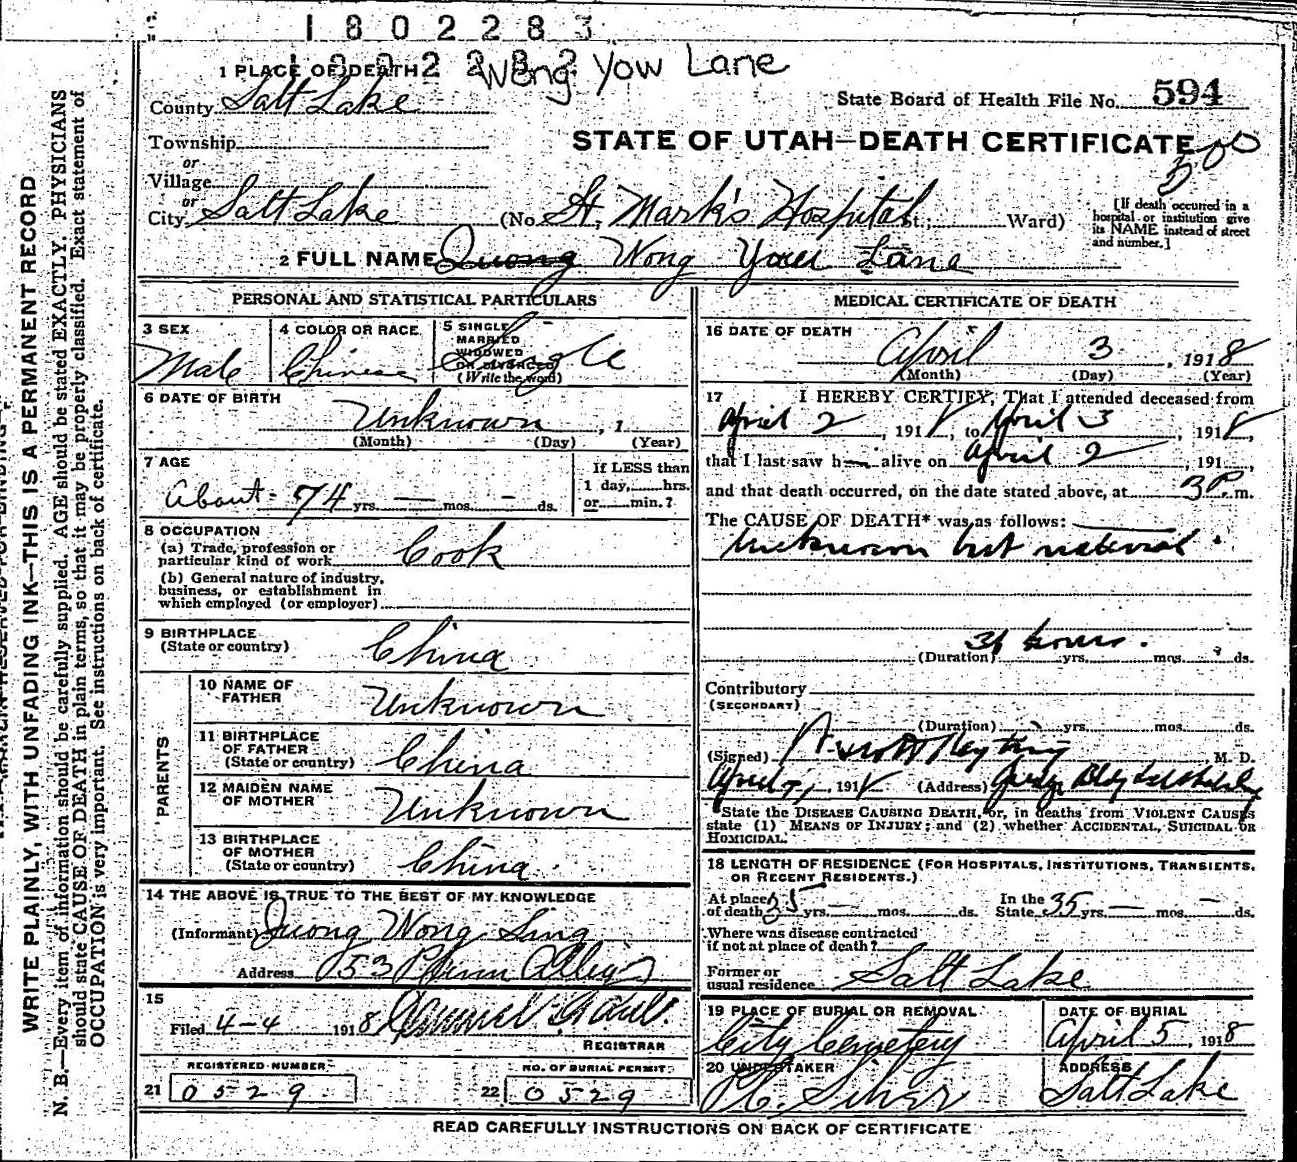 1802283
Wong Yow Lane
1 PLACE OF DEATH
County Salt Lake
State Board of Health File No. 594
Township
STATE OF UTAH—DEATH CERTIFICATE
or
Village
or
City Salt Lake (No. St. Mark's Hospital St.; Ward)
[If death occurred in a hospital or institution give its NAME instead of street and number.]
2 FULL NAME Quong Wong Yow Lane
PERSONAL AND STATISTICAL PARTICULARS
3 SEX
Male
4 COLOR OR RACE
Chinese
5 SINGLE
MARRIED
WIDOWED
OR DIVORCED
(Write the word)
Single
6 DATE OF BIRTH
Unknown, 1
(Month) (Day) (Year)
7 AGE
About 74 yrs. — mos. — ds.
If LESS than
1 day, hrs.
or min.?
8 OCCUPATION
(a) Trade, profession or
particular kind of work Cook
(b) General nature of industry,
business, or establishment in
which employed (or employer)
9 BIRTHPLACE
(State or country) China
PARENTS
10 NAME OF
FATHER Unknown
11 BIRTHPLACE
OF FATHER
(State or country) China
12 MAIDEN NAME
OF MOTHER Unknown
13 BIRTHPLACE
OF MOTHER
(State or country) China
14 THE ABOVE IS TRUE TO THE BEST OF MY KNOWLEDGE
(Informant) Quong Wong Sing
Address 53 Plum Alley
15
Filed 4-4 1918
REGISTRAR
REGISTERED NUMBER
21 0529
NO. OF BURIAL PERMIT
22 0529
MEDICAL CERTIFICATE OF DEATH
16 DATE OF DEATH
April 3, 1918
(Month) (Day) (Year)
17 I HEREBY CERTIFY, That I attended deceased from
April 2, 1918, to April 3, 1918,
that I last saw h— alive on April 2, 191
and that death occurred, on the date stated above, at 3 P. m.
The CAUSE OF DEATH* was as follows:
Unknown but natural.
hours.
(Duration) yrs. mos. ds.
Contributory
(SECONDARY)
(Duration) yrs. mos. ds.
(Signed) M. D.
April, 1918 (Address)
*State the DISEASE CAUSING DEATH, or, in deaths from VIOLENT CAUSES
state (1) MEANS OF INJURY; and (2) whether ACCIDENTAL, SUICIDAL OR
HOMICIDAL.
18 LENGTH OF RESIDENCE (FOR HOSPITALS, INSTITUTIONS, TRANSIENTS,
OR RECENT RESIDENTS.)
At place
of death 35 yrs. — mos. ds.
In the
State 35 yrs. — mos. — ds.
Where was disease contracted
if not at place of death?
Former or
usual residence Salt Lake
19 PLACE OF BURIAL OR REMOVAL
City Cemetery
DATE OF BURIAL
April 5, 1918
20 UNDERTAKER
Silver
ADDRESS
Salt Lake
READ CAREFULLY INSTRUCTIONS ON BACK OF CERTIFICATE
WRITE PLAINLY, WITH UNFADING INK—THIS IS A PERMANENT RECORD
N. B.—Every item of information should be carefully supplied. AGE should be stated EXACTLY. PHYSICIANS
should state CAUSE OF DEATH in plain terms, so that it may be properly classified. Exact statement of
OCCUPATION is very important. See instructions on back of certificate.